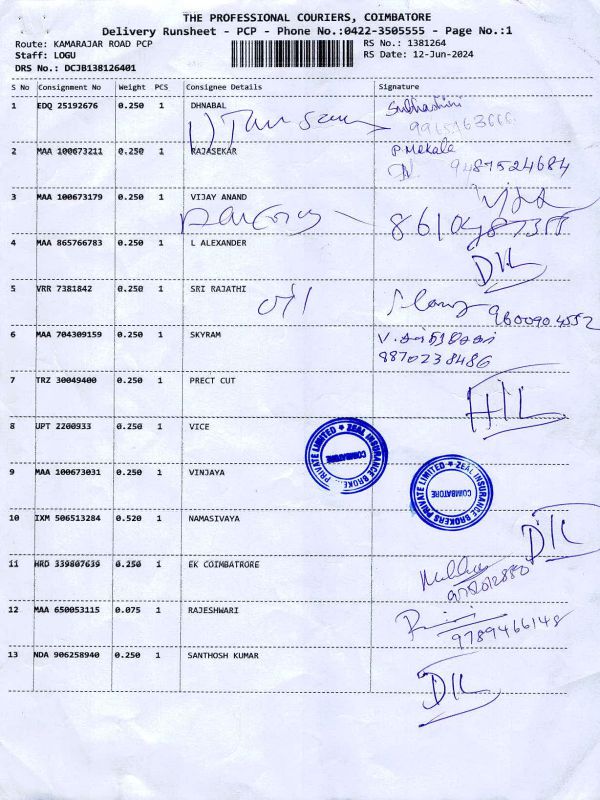 THE PROFESSIONAL COURIERS, COIMBATORE
Delivery Runsheet - PCP - Phone No.:0422-3505555 - Page No.:1
Route: KAMARAJAR ROAD PCP
RS No.: 1381264
Staff: LOGU
RS Date: 12-Jun-2024
DRS No.: DCJB138126401
S No Consignment No Weight PCS Consignee Details Signature
1 EDQ 25192676 0.250 1 DHNABAL Subhashini
2 MAA 100673211 0.250 1 RAJASEKAR P.Mekala
9487524684
3 MAA 100673179 0.250 1 VIJAY ANAND
4 MAA 865766783 0.250 1 L ALEXANDER DIL
5 VRR 7381842 0.250 1 SRI RAJATHI
9600904552
6 MAA 704309159 0.250 1 SKYRAM
9870238486
7 TRZ 30049400 0.250 1 PRECT CUT
8 UPT 2200933 0.250 1 VICE
ZEAL INSURANCE BROKE... PRIVATE LIMITED
COIMBATORE
9 MAA 100673031 0.250 1 VINJAYA
ZEAL INSURANCE BROKERS PRIVATE LIMITED
COIMBATORE
10 IXM 506513284 0.520 1 NAMASIVAYA DIL
11 HRD 339807639 0.250 1 EK COIMBATRORE
12 MAA 650053115 0.075 1 RAJESHWARI
9789466148
13 NDA 906258940 0.250 1 SANTHOSH KUMAR
DIL